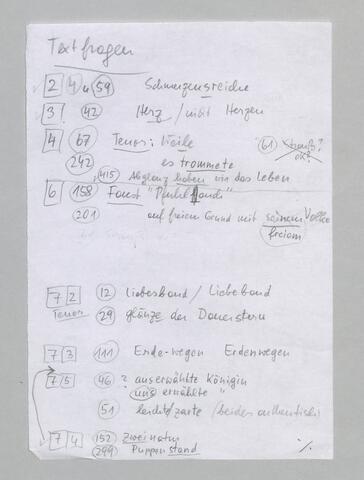 Textfragen
2 44 59 Schmerzensreiche
3! 42 Herz / nicht Herzen
4 67 Tenor: Weile 61
242 es trommete
415 Abglanz haben wir das Leben
6 158 Faust
201 auf freien Grund mit seinem Volke
freiem
72 12 Liebesband / Liebeband
Tenor 29 glänze der Dauerstern
73 111 Erde-wegen Erdenwegen
75 46 ? auserwählte Königin
uns erwählte "
51 leichte/zarte (beides authentisch)
74 152 zweinatur
299 Puppenstand ./.